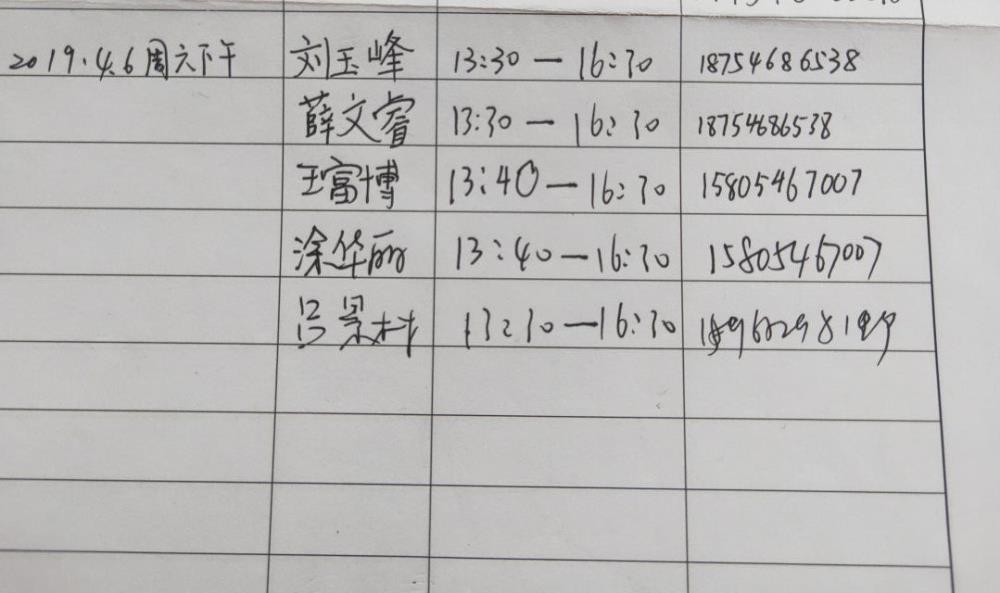 2019.4.6周六下午 刘玉峰 13:30 — 16:30 18754686538
薛文睿 13:30 — 16:30 18754686538
王富博 13:40 — 16:30 15805467007
涂华丽 13:40 — 16:30 15805467007
吕景村 13:30 — 16:30